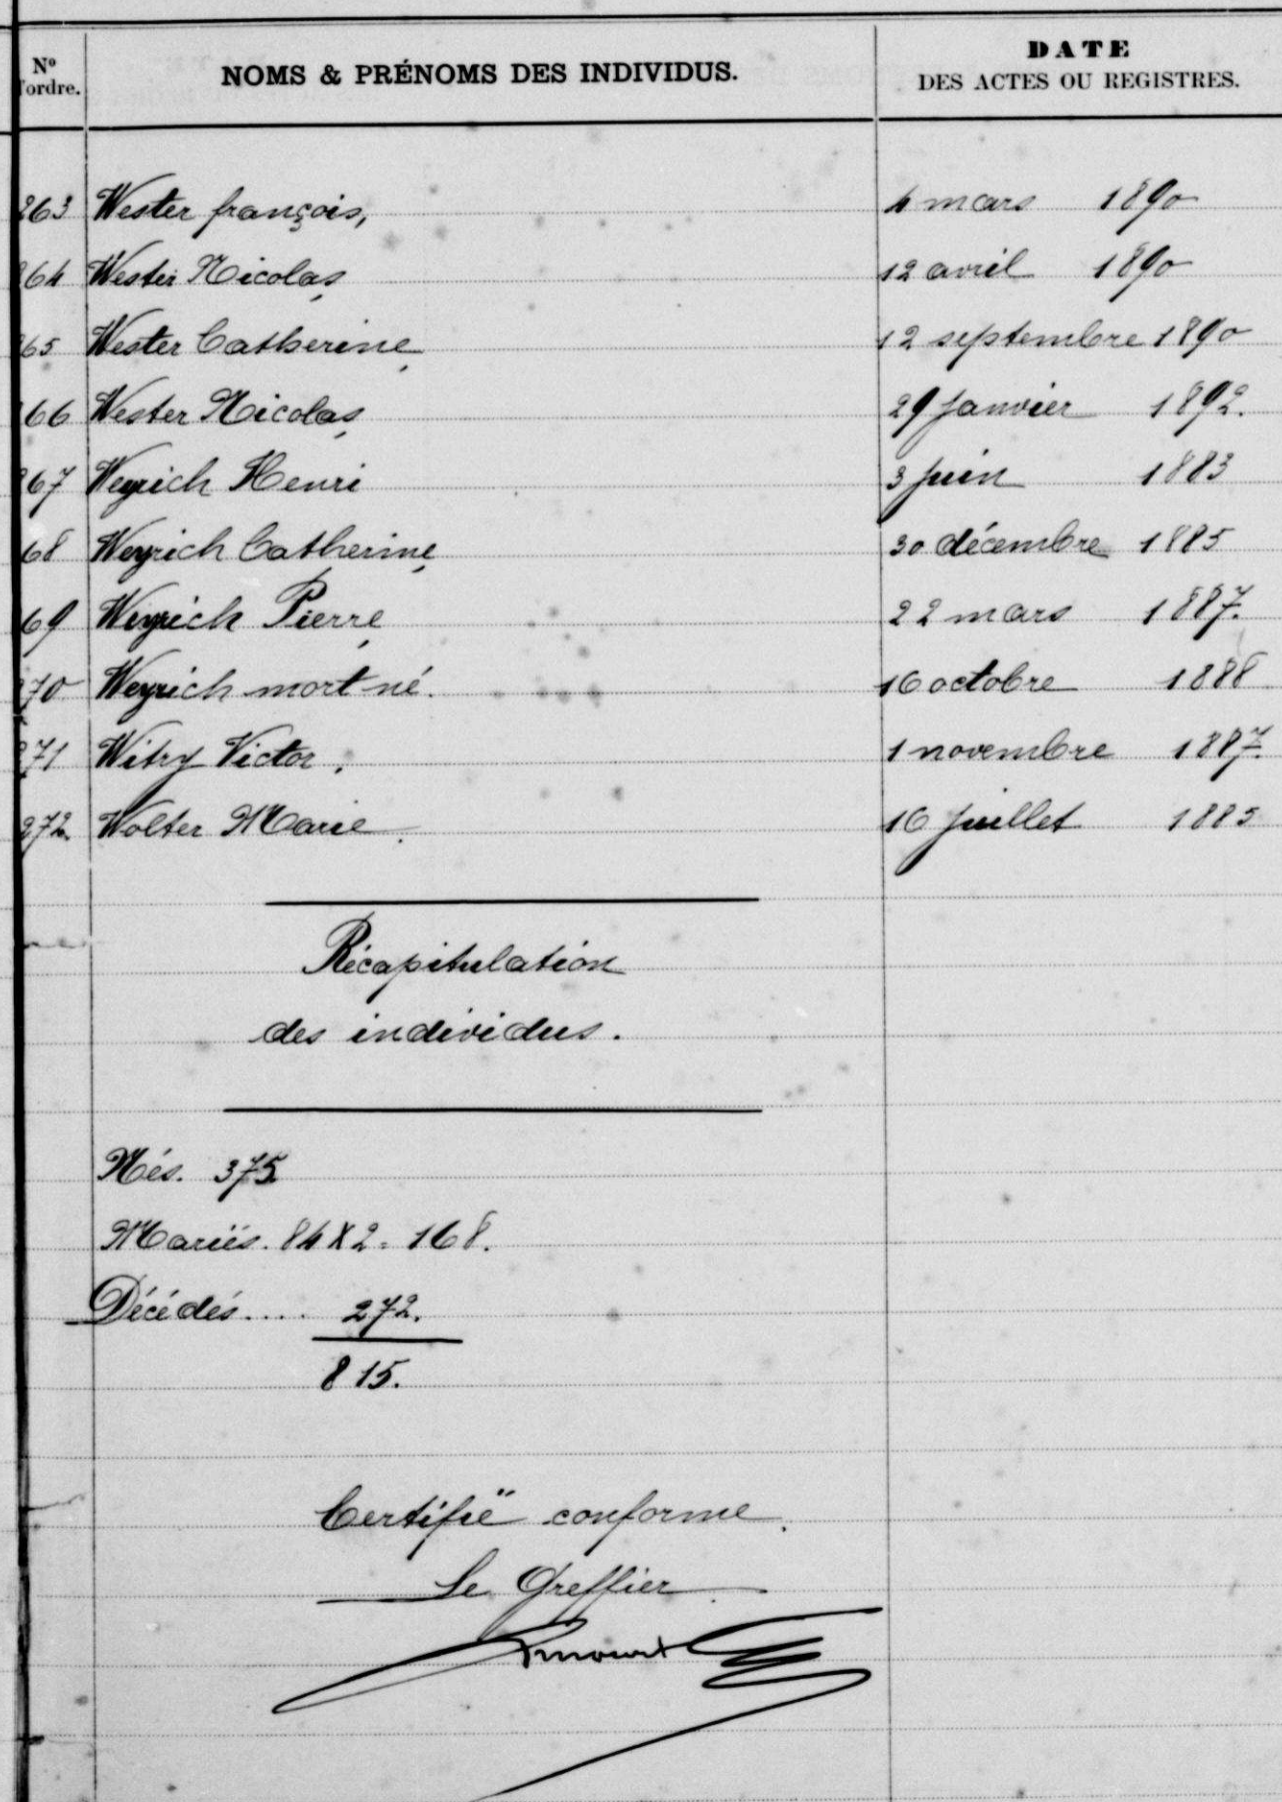 DATE
N° NOMS & PRÉNOMS DES INDIVIDUS.
ordre. DES ACTES OU REGISTRES.
263 Wester françois, 4 mars 1890
64 Wester Nicolas, 12 avril 1890
65 Wester Catherine, 12 septembre 1890
66 Wester Nicolas, 29 janvier 1892.
267 Weyrich Henri 3 juin 1883
68 Weyrich Catherine, 30 décembre 1885
69 Weyrich Pierre, 22 mars 1887.
270 Weyrich mort né. 16 octobre 1888
271 Witry Victor, 1 novembre 1887.
272. Wolter Marie. 16 juillet 1885
Récapitulation
des individus.
Nés. 375
Mariés. 84 X 2 = 168.
Décédés.... 272.
815.
Certifié conforme.
Le Greffier